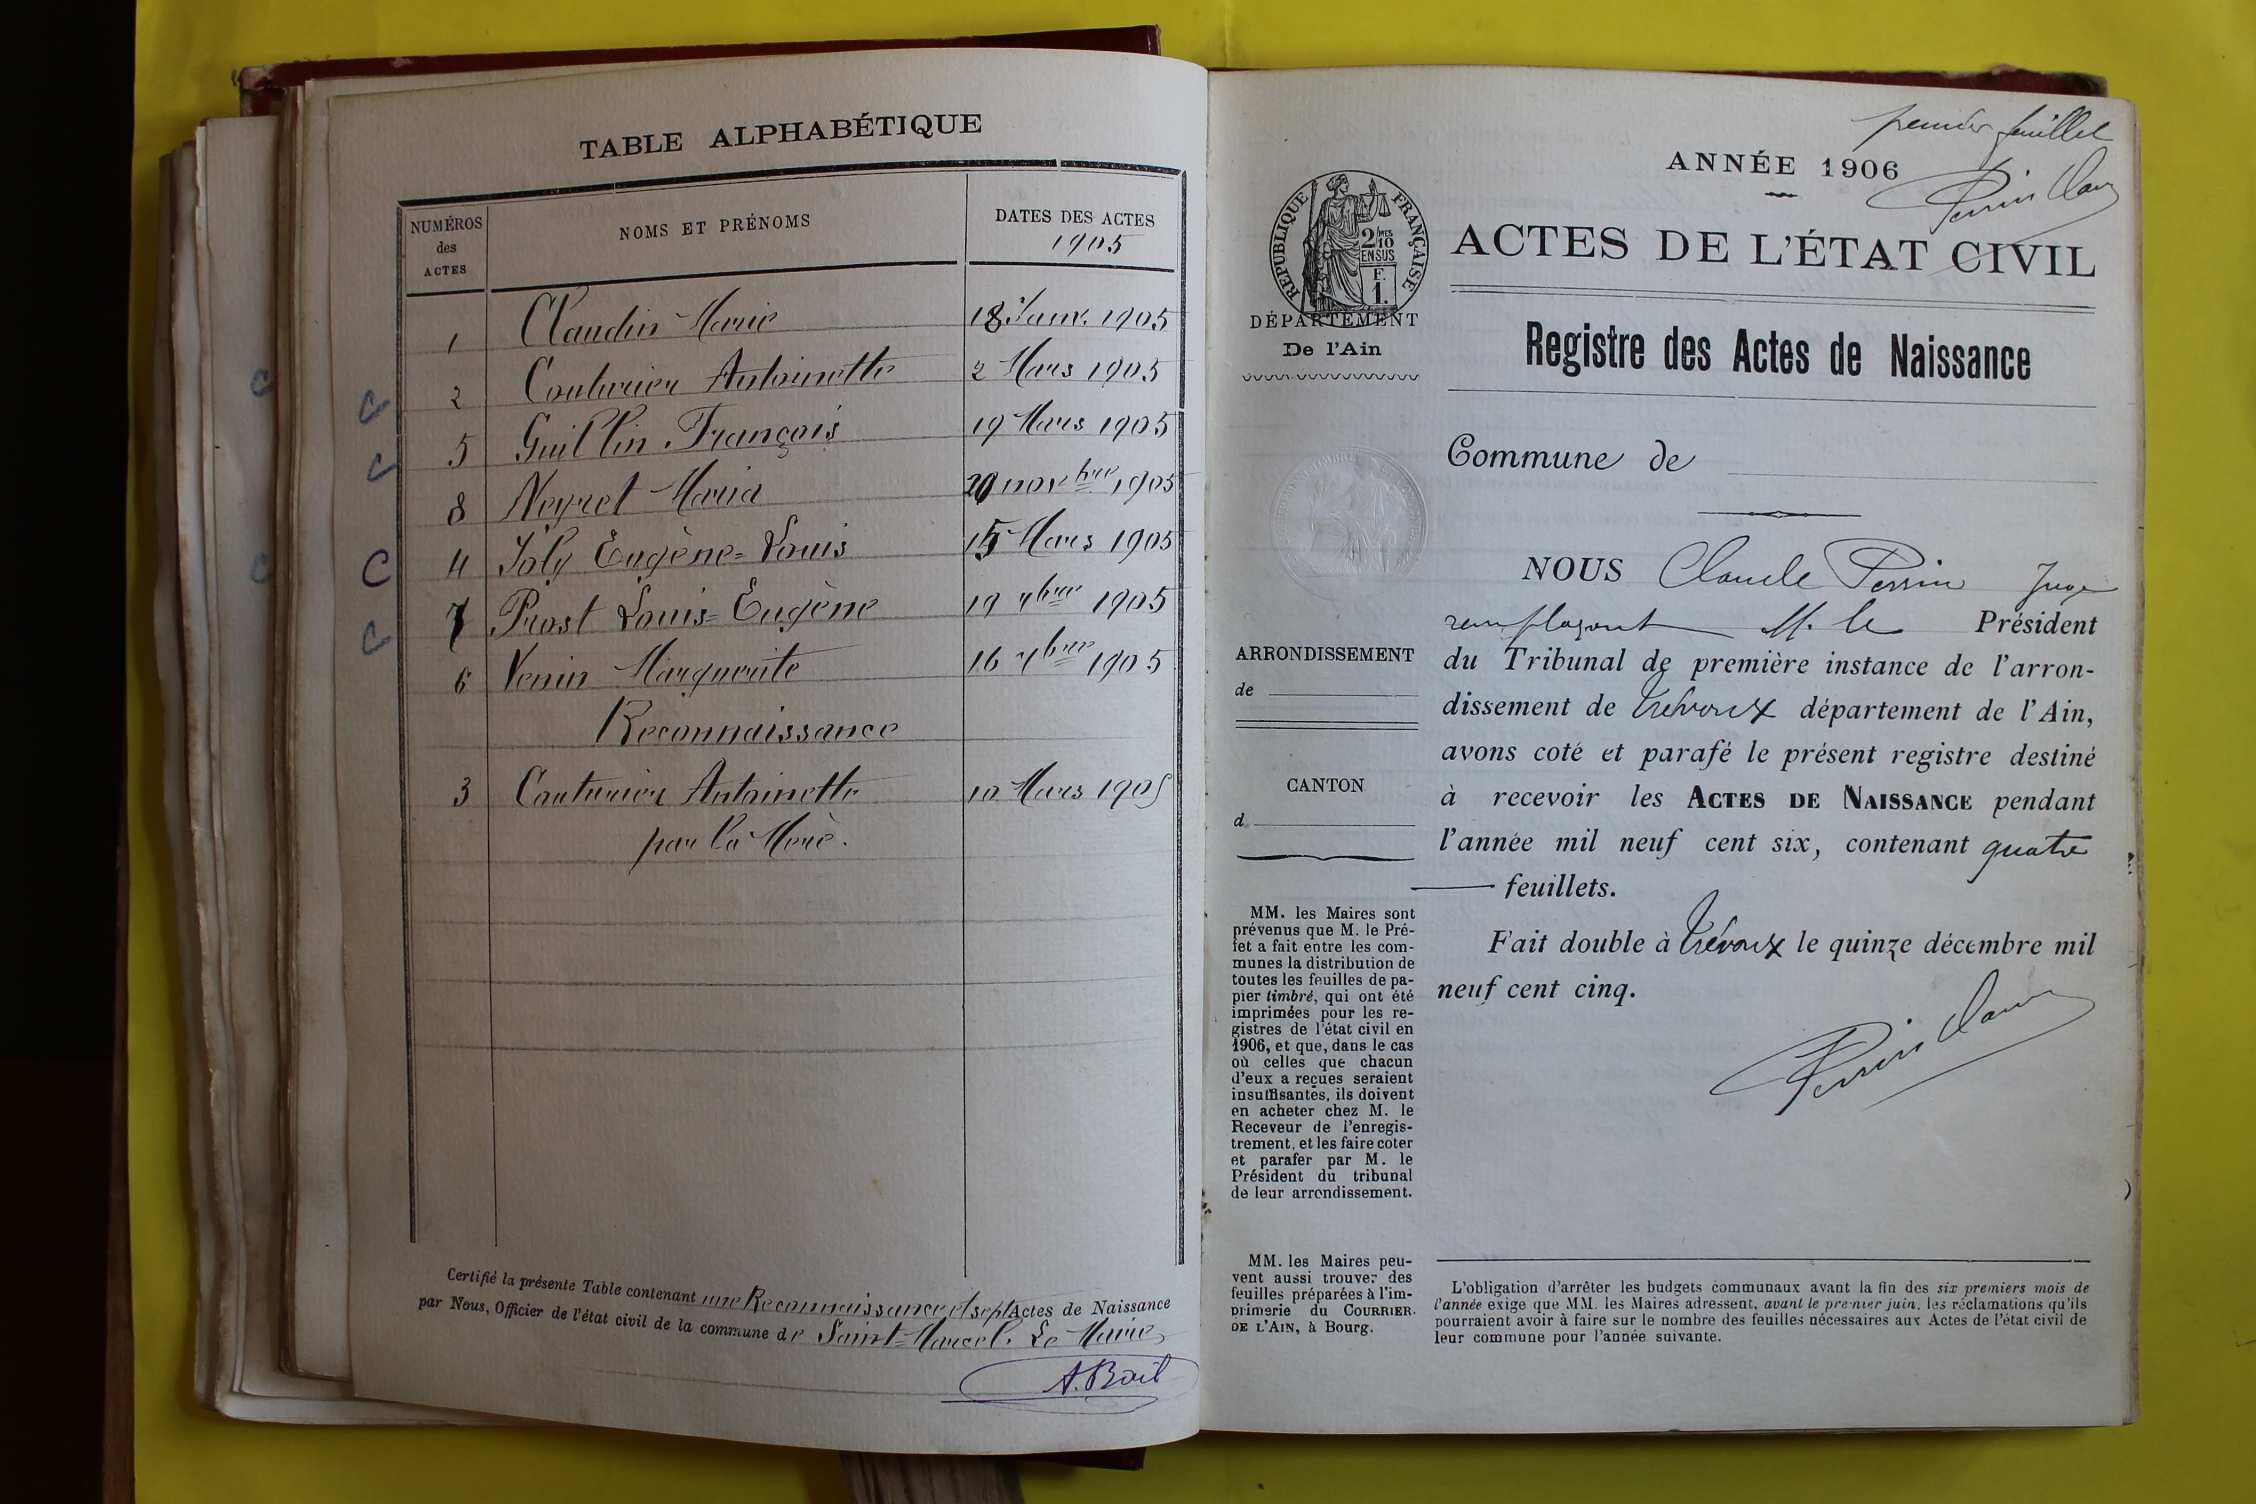 TABLE ALPHABÉTIQUE
NUMÉROS des ACTES
NOMS ET PRÉNOMS
DATES DES ACTES
1905
1 Claudin Marie 18 Janv. 1905
2 Couturier Antoinette 2 Mars 1905
5 Guillin François 19 Mars 1905
8 Neyret Maria 20 novbre 1905
4 Joly Eugène=Louis 15 Mars 1905
7 Prost Louis=Eugène 19 7bre 1905
6 Venin Marguerite 16 7bre 1905
Reconnaissance
3 Couturier Antoinette 10 Mars 1905
par la Mère.
C
C
C
C
C
C
Certifié la présente Table contenant une Reconnaissance et sept Actes de Naissance
par Nous, Officier de l'état civil de la commune de Saint-Marcel. Le Maire,
A. Bail
premier feuillet
Perrin Claude
ANNÉE 1906
RÉPUBLIQUE FRANÇAISE
2/10 mes
EN SUS
F.
1.
ACTES DE L'ÉTAT CIVIL
DÉPARTEMENT
De l'Ain
Registre des Actes de Naissance
Commune de
NOUS Claude Perrin Juge
remplaçant M. le Président
du Tribunal de première instance de l'arron-
dissement de Trévoux département de l'Ain,
avons coté et parafé le présent registre destiné
à recevoir les ACTES DE NAISSANCE pendant
l'année mil neuf cent six, contenant quatre
feuillets.
Fait double à Trévoux le quinze décembre mil
neuf cent cinq.
Perrin Claude
ARRONDISSEMENT
de
CANTON
d
MM. les Maires sont
prévenus que M. le Pré-
fet a fait entre les com-
munes la distribution de
toutes les feuilles de pa-
pier timbré, qui ont été
imprimées pour les re-
gistres de l'état civil en
1906, et que, dans le cas
où celles que chacun
d'eux a reçues seraient
insuffisantes, ils doivent
en acheter chez M. le
Receveur de l'enregis-
trement, et les faire coter
et parafer par M. le
Président du tribunal
de leur arrondissement.
MM. les Maires peu-
vent aussi trouver des
feuilles préparées à l'im-
primerie du COURRIER
DE L'AIN, à Bourg.
L'obligation d'arrêter les budgets communaux avant la fin des six premiers mois de
l'année exige que MM. les Maires adressent, avant le premier juin, les réclamations qu'ils
pourraient avoir à faire sur le nombre des feuilles nécessaires aux Actes de l'état civil de
leur commune pour l'année suivante.